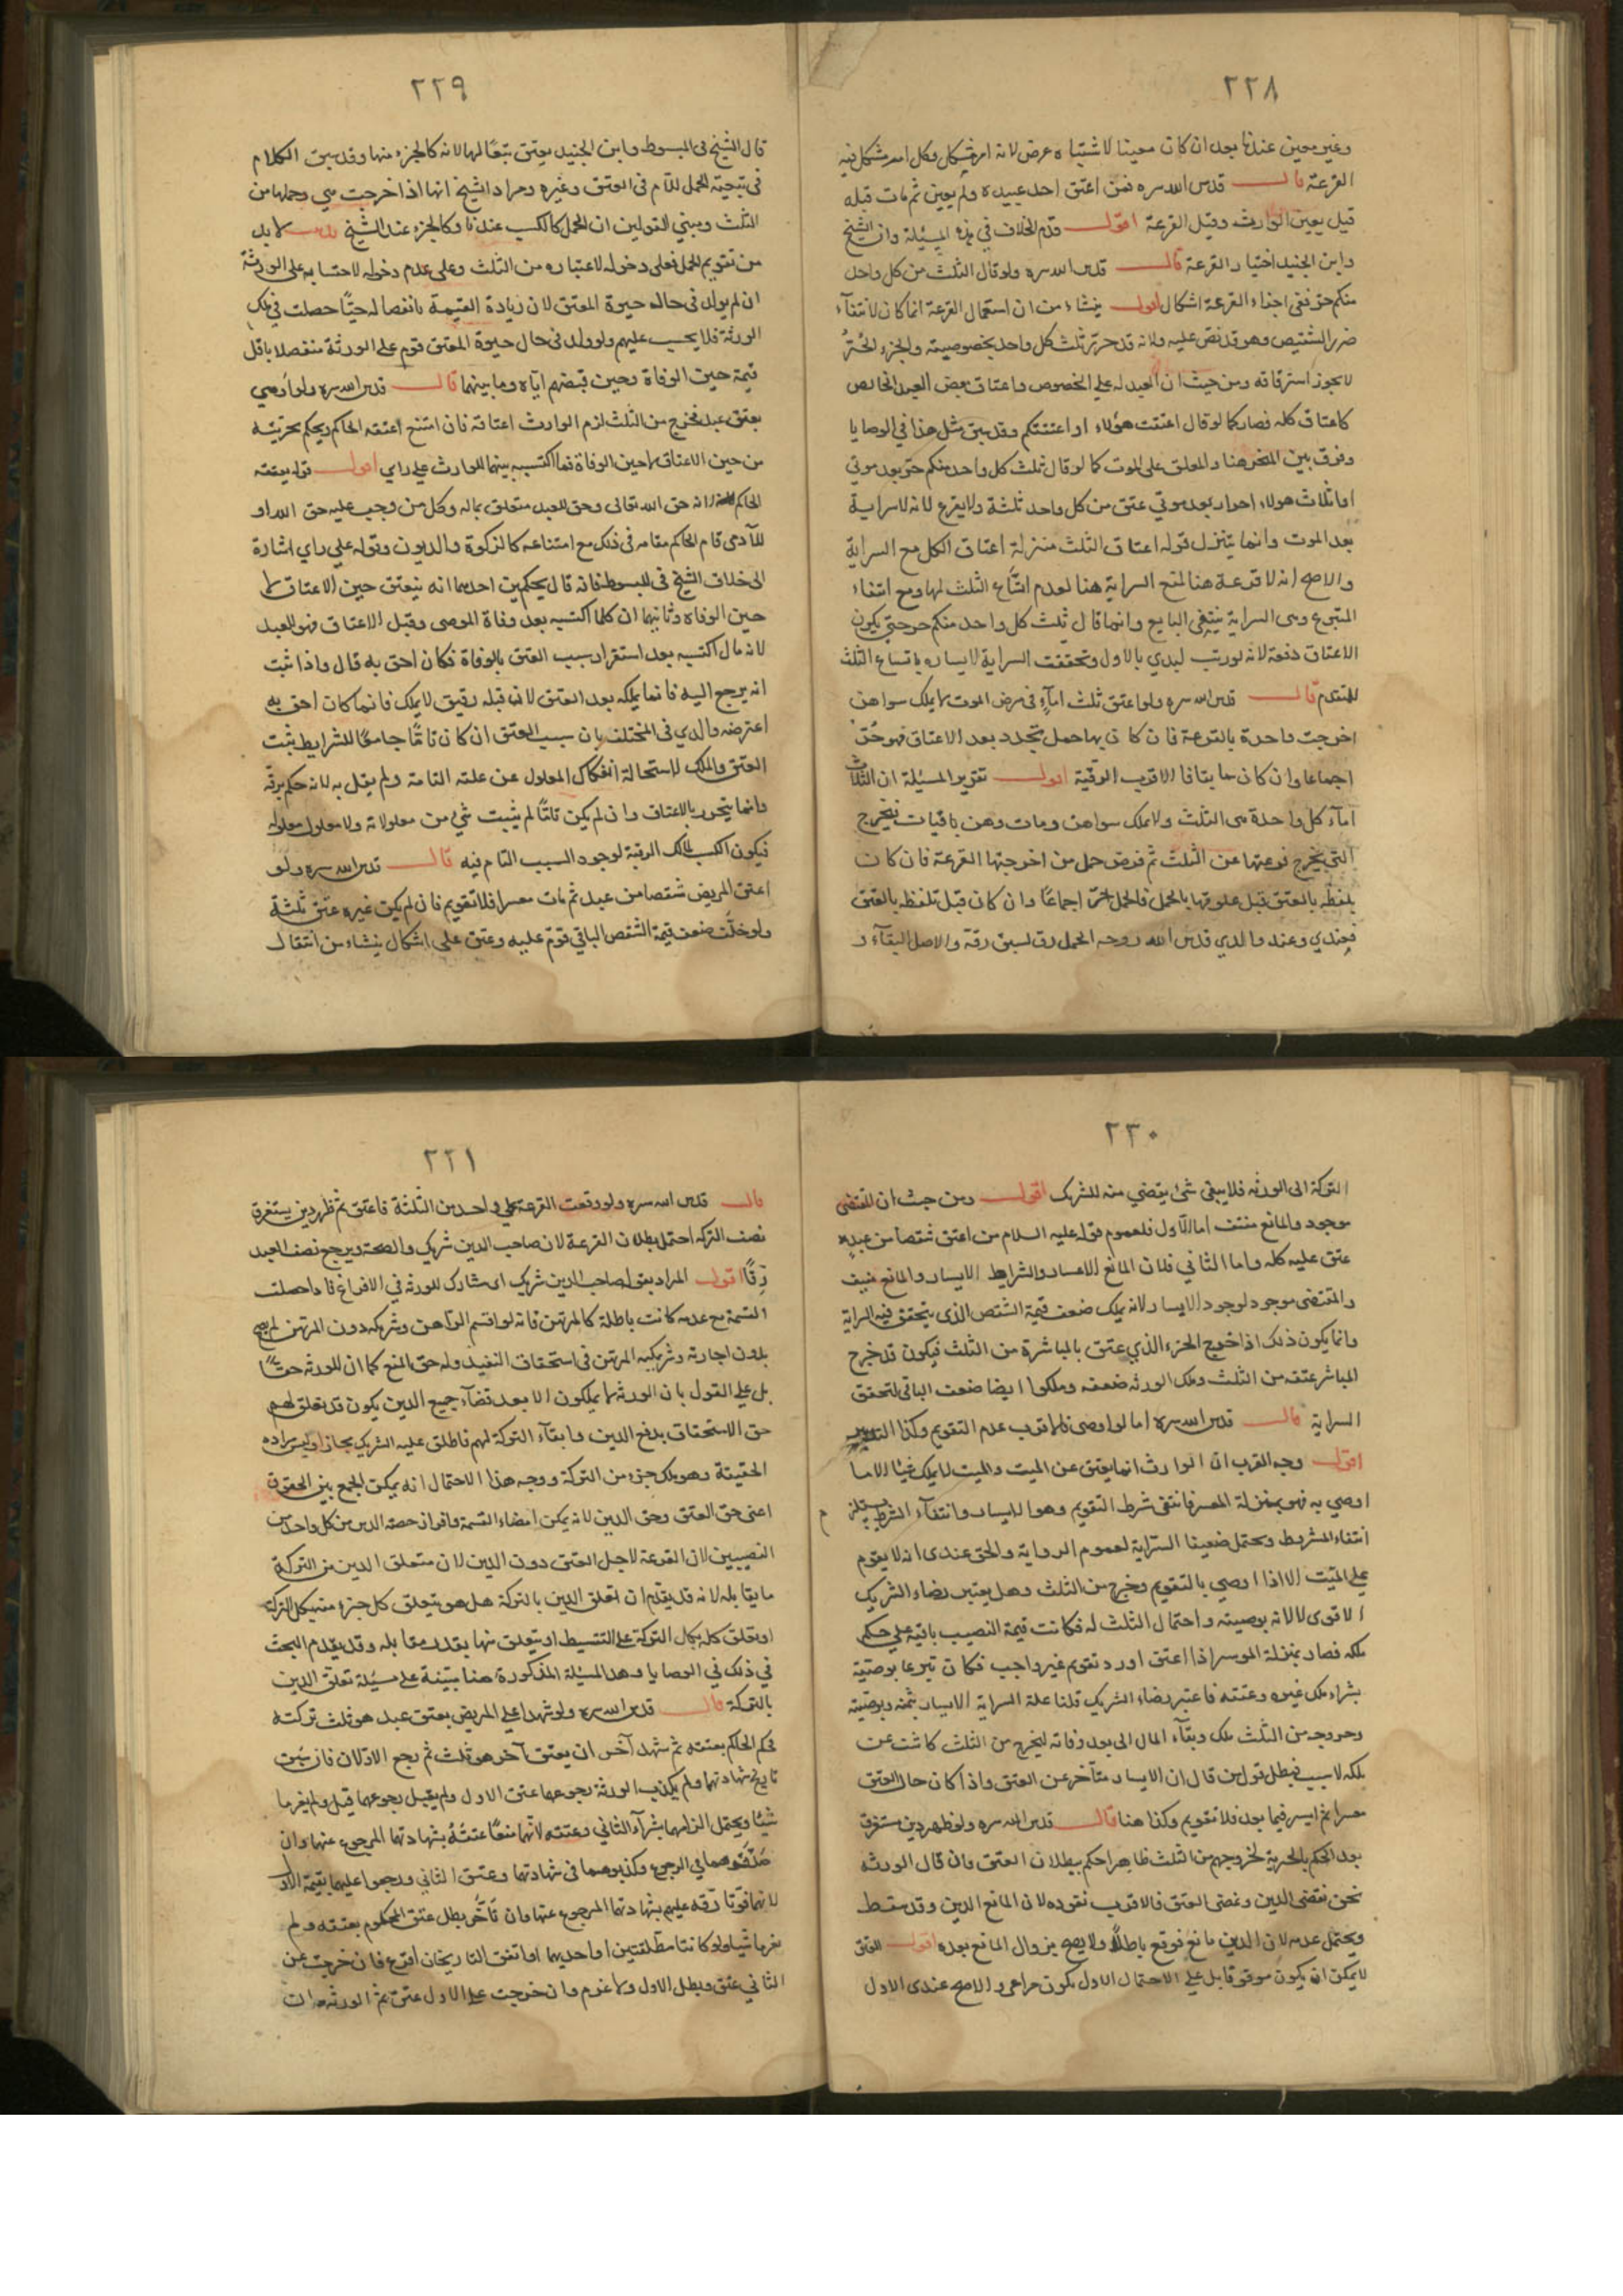 ٢٢٨
وغير معين عندنا بعد ان كان معينا لاشتباه عرض لانه امر مشكل وكل امر مشكل فيه
القرعة قال قدس الله سره فمن اعتق احد عبيده ولم يعين ثم مات قبله
قيل يعين الوارث وقيل القرعة اقول قدم الخلاف في هذه المسئلة وان الشيخ
وابن الجنيد اختيار القرعة قال قدس الله سره ولو قال الثلث من كل واحد
منكم حر ففي اجزاء القرعة اشكال اقول ينشاء من ان استعمال القرعة انما كان لانتفاء
ضرر التشقيص وهو قد نص عليه ولانه قد حرر ثلث كل واحد بخصوصيته والجزء الحر
لا يجوز استرقاقه ومن حيث ان العبد له على الخصوص واعتاق بعض العبد الخالص
كاعتاق كله فصار كما لو قال اعتقت هؤلاء او اعتقتكم وقد سبق مثل هذا في الوصايا
وفرق بين المنجز هنا والمعلق على الموت كما لو قال ثلث كل واحد منكم حر بعد موتي
او اثلاث هولاء احرار بعد موتي عتق من كل واحد ثلثة ولا يقرع لانه لا سراية
بعد الموت وانما يتنزل قوله اعتاق الثلث منزلة اعتاق الكل مع السراية
والاصح انه لا قرعة هنا لمنع السراية هنا لعدم اتساع الثلث لها ومع انتفاء
المتبوع وهي السراية ينتفي التابع وانما قال ثلث كل واحد منكم حر حتى يكون
الاعتاق دفعة لانه لو رتب لبدي بالاول وتحققت السراية لايساره باتساع الثلث
للمتقدم قال قدس الله سره ولو اعتق ثلث اماء في مرض الموت لا يملك سواهن
اخرجت واحدة بالقرعة فان كان بها حمل تجدد بعد الاعتاق فهو حر
اجماعا وان كان سابقا فالاقرب الرقية اقول تقرير المسئلة ان الثلاث
اماء كل واحدة هى الثلث ولا يملك سواهن ومات وهن باقيات فيخرج
التي يخرج قرعتها عن الثلث ثم فرض حمل من اخرجتها القرعة فان كان
بلفظه بالعتق قبل علوقها بالحمل فالحمل حر اجماعا وان كان قبل تلفظه بالعتق
فعندي وعند والدي قدس الله روحه الحمل رق لسبق رقه والاصل البقاء و
٢٢٩
قال الشيخ في المبسوط وابن الجنيد يعتق تبعا لها لانه كالجزء منها وقد سبق الكلام
في تبعية الحمل للام في العتق وغيره ومراد الشيخ انها اذا خرجت هي وحملها من
الثلث ومبني القولين ان الحمل كالكسب عندنا وكالجزء عند الشيخ لا بد
من تقويم الحمل فعلى دخوله لاعتباره من الثلث وعلى عدم دخوله لاحتسابه على الورثة
ان لم يولد في حال حيوة المعتق لان زيادة القيمة بانفصاله حيا حصلت في ملك
الورثة فلا يحسب عليهم ولو ولد في حال حيوة المعتق قوم على الورثة منفصلا باقل
قيمة حين الوفاة وحين قبضهم اياه وما بينهما قال قدس الله سره ولو اوصي
بعتق عبد فخرج من الثلث لزم الوارث اعتاقه فان امتنع اعتقه الحاكم ويحكم بحريته
من حين الاعتاق لا حين الوفاة فما اكتسبه بينهما للوارث علي راي اقول قوله يعتقه
الحاكم لانه حق الله تعالى وحق للعبد متعلق بماله وكل من وجب عليه حق الله او
للآدمي قام الحاكم مقامه في ذلك مع امتناعه كالزكوة والديون وقوله علي راي اشارة
الى خلاف الشيخ في المبسوط فانه قال بحكمين احدهما انه ينعتق حين الاعتاق لا
حين الوفاه وثانيهما ان كلما اكتسبه بعد وفاة الموصي وقبل الاعتاق فهو للعبد
لانه مال اكتسبه بعد استقرار سبب العتق بالوفاة فكان احق به قال واذا ثبت
انه يرجع اليه فانما يملكه بعد العتق لانه قبله رقيق لا يملك فانما كان احق به
اعترضه والدي في المختلف بان سبب العتق ان كان تاما جامعا للشرايط يثبت
العتق والملك لاستحالة انفكاك المعلول عن علته التامة ولم يقل به لانه حكم برقه
وانما يتحرر بالاعتاق وان لم يكن تاما لم يثبت شيء من معلولاته ولا معلول معلوله
فيكون الكسب لمالك الرقبة لوجود السبب التام فيه قال قدس الله سره ولو
اعتق المريض شقصا من عبد ثم مات معسرا فلا تقويم فان لم يكن غيره عتق ثلثة
ولو خلف ضعف قيمة الشقص الباقي قوم عليه وعتق على اشكال ينشاء من انتقال
٢٣٠
التركة الى الورثه فلا يبقى شئ يقضي منه للشريك اقول ومن حيث ان المقتضى
موجود والمانع منتف اما الاول فلعموم قوله عليه السلام من اعتق شقصا من عبده
عتق عليه كله واما الثاني فلان المانع الاعسار والشرايط الايسار والمانع منتف
والمقتضى موجود لوجود الايسار لانه يملك ضعف قيمة الشقص الذي يتحقق فيه السراية
وانما يكون ذلك اذا خرج الجزء الذي عتق بالمباشرة من الثلث فيكون قد خرج
المباشر عتقه من الثلث وملك الورثه ضعفه وملكوا ايضا ضعف الباقي لتحقق
السراية قال قدس الله سره اما لو اوصى فالاقرب عدم التقويم وكذا التدبير
اقول وجه القرب ان الوارث انما يعتق عن الميت والميت لا يملك شيئا الا ما
اوصي به فهو بمنزلة المعسر فانتفى شرط التقويم وهو الايسار وانتفاء الشرط يستلزم
انتفاء المشروط ويحتمل ضعيفا السراية لعموم الرواية والحق عندى انه لا يقوم
على الميت الا اذا اوصي بالتقويم وخرج من الثلث وهل يعتبر رضاء الشريك
الاقوى لا لانه بوصيته واحتمال الثلث له فكانت قيمة النصيب باقية علي حكم
ملكه فصار بمنزلة الموسر اذا اعتق او رد تقويم غير واجب فكان تبرعا بوصية
بشراء ملك غيره وعتقه فاعتبر رضاء الشريك قلنا علة السراية الايسار بثمنه وبوصيته
وخروجه من الثلث ملك وبقاء المال الى بعد وفاته ليخرج من الثلث كاشف عن
ملكه لا سبب فبطل قول من قال ان الايسار متأخر عن العتق واذا كان حال العتق
معسرا ثم ايسر فيما بعد فلا تقويم وكذا هنا قال قدس الله سره ولو ظهر دين مستغرق
بعد الحكم بالحرية لخروجهم من الثلث ظاهرا حكم ببطلان العتق وان قال الورثه
نحن نقضى الدين ونمضى العتق فالاقرب نفوذه لان المانع الدين وقد سقط
ويحتمل عدمه لان الدين مانع فوقع باطلا ولا يصح بزوال المانع بعده اقول العتق
لا يمكن ان يكون موقوفا بل على الاحتمال الاول يكون مراعى والاصح عندى الاول
٢٢١
قال قدس الله سره ولو وقعت القرعة على واحد من الثلثة فاعتق ثم ظهر دين يستغرق
نصف التركه احتمل بطلان القرعة لان صاحب الدين شريك والصحة ويرجع نصف العبد
رقا اقول المراد بقوله صاحب الدين شريك اى مشارك للورثه في الاقراع فاذا حصلت
القسمة مع عدمه كانت باطلة كالمرتهن فانه لو اقتسم الراهن وشريكه دون المرتهن لم يصح
بدون اجازته وشريكيه المرتهن في استحقاق التنفيذ وله حق المنع كما ان للورثه حقا
بل على القول بان الورثة لا يملكون الا بعد قضاء جميع الدين يكون قد تعلق لهم
حق الاستحقاق بدفع الدين وابقاء التركة لهم فاطلق عليه الشريك مجازا وليس مراده
الحقيقة وهو ملك جزء من التركة ووجه هذا الاحتمال انه يمكن الجمع بين الحقوق
اعنى حق العتق وحق الدين لانه يمكن امضاء القسمة وافراز حصه الدين من كل واحد من
النصيبين لان القرعة لاجل العتق دون الدين لان متعلق الدين من التركة
ما يقابله لانه قد يقدم ان تعلق الدين بالتركة هل هو يتعلق كل جزء منه بكل التركة
او تعلق كله بكل التركة على التقسيط او يتعلق منها بقدر مقابله وقد يقدم البحث
في ذلك في الوصايا وهذا المسئلة المذكورة هنا مبينة على مسئلة تعلق الدين
بالتركة قال قدس الله سره ولو شهدا على المريض بعتق عبد هو ثلث تركته
فحكم الحاكم بعتقه ثم شهد آخران بعتق آخر هو ثلث ثم رجع الاولان فان سبق
تاريخ شهادتهما ولم يكذب الورثة رجوعهما عتق الاول ولم يقبل رجوعهما قبل ولم يغرما
شيئا ويحتمل الزامهما بشراء الثاني وعتقه لانهما منعا عتقه بشهادتهما المرجوع عنها وان
صدقوهما في الرجوع وكذبوهما في شهادتهما وعتق الثاني ورجعوا عليهما بقيمة الاول
لانهما فوتا رقه عليهم بشهادتهما المرجوع عنها وان تأخر بطل عتق المحكوم بعتقه ولم
يغرما شيئا ولو كانتا مطلقتين او احديهما او اتفق التاريخان اقرع فان خرجت عن
الثاني عتق وبطل الاول ولا غرم وان خرجت على الاول عتق ثم الورثه ان